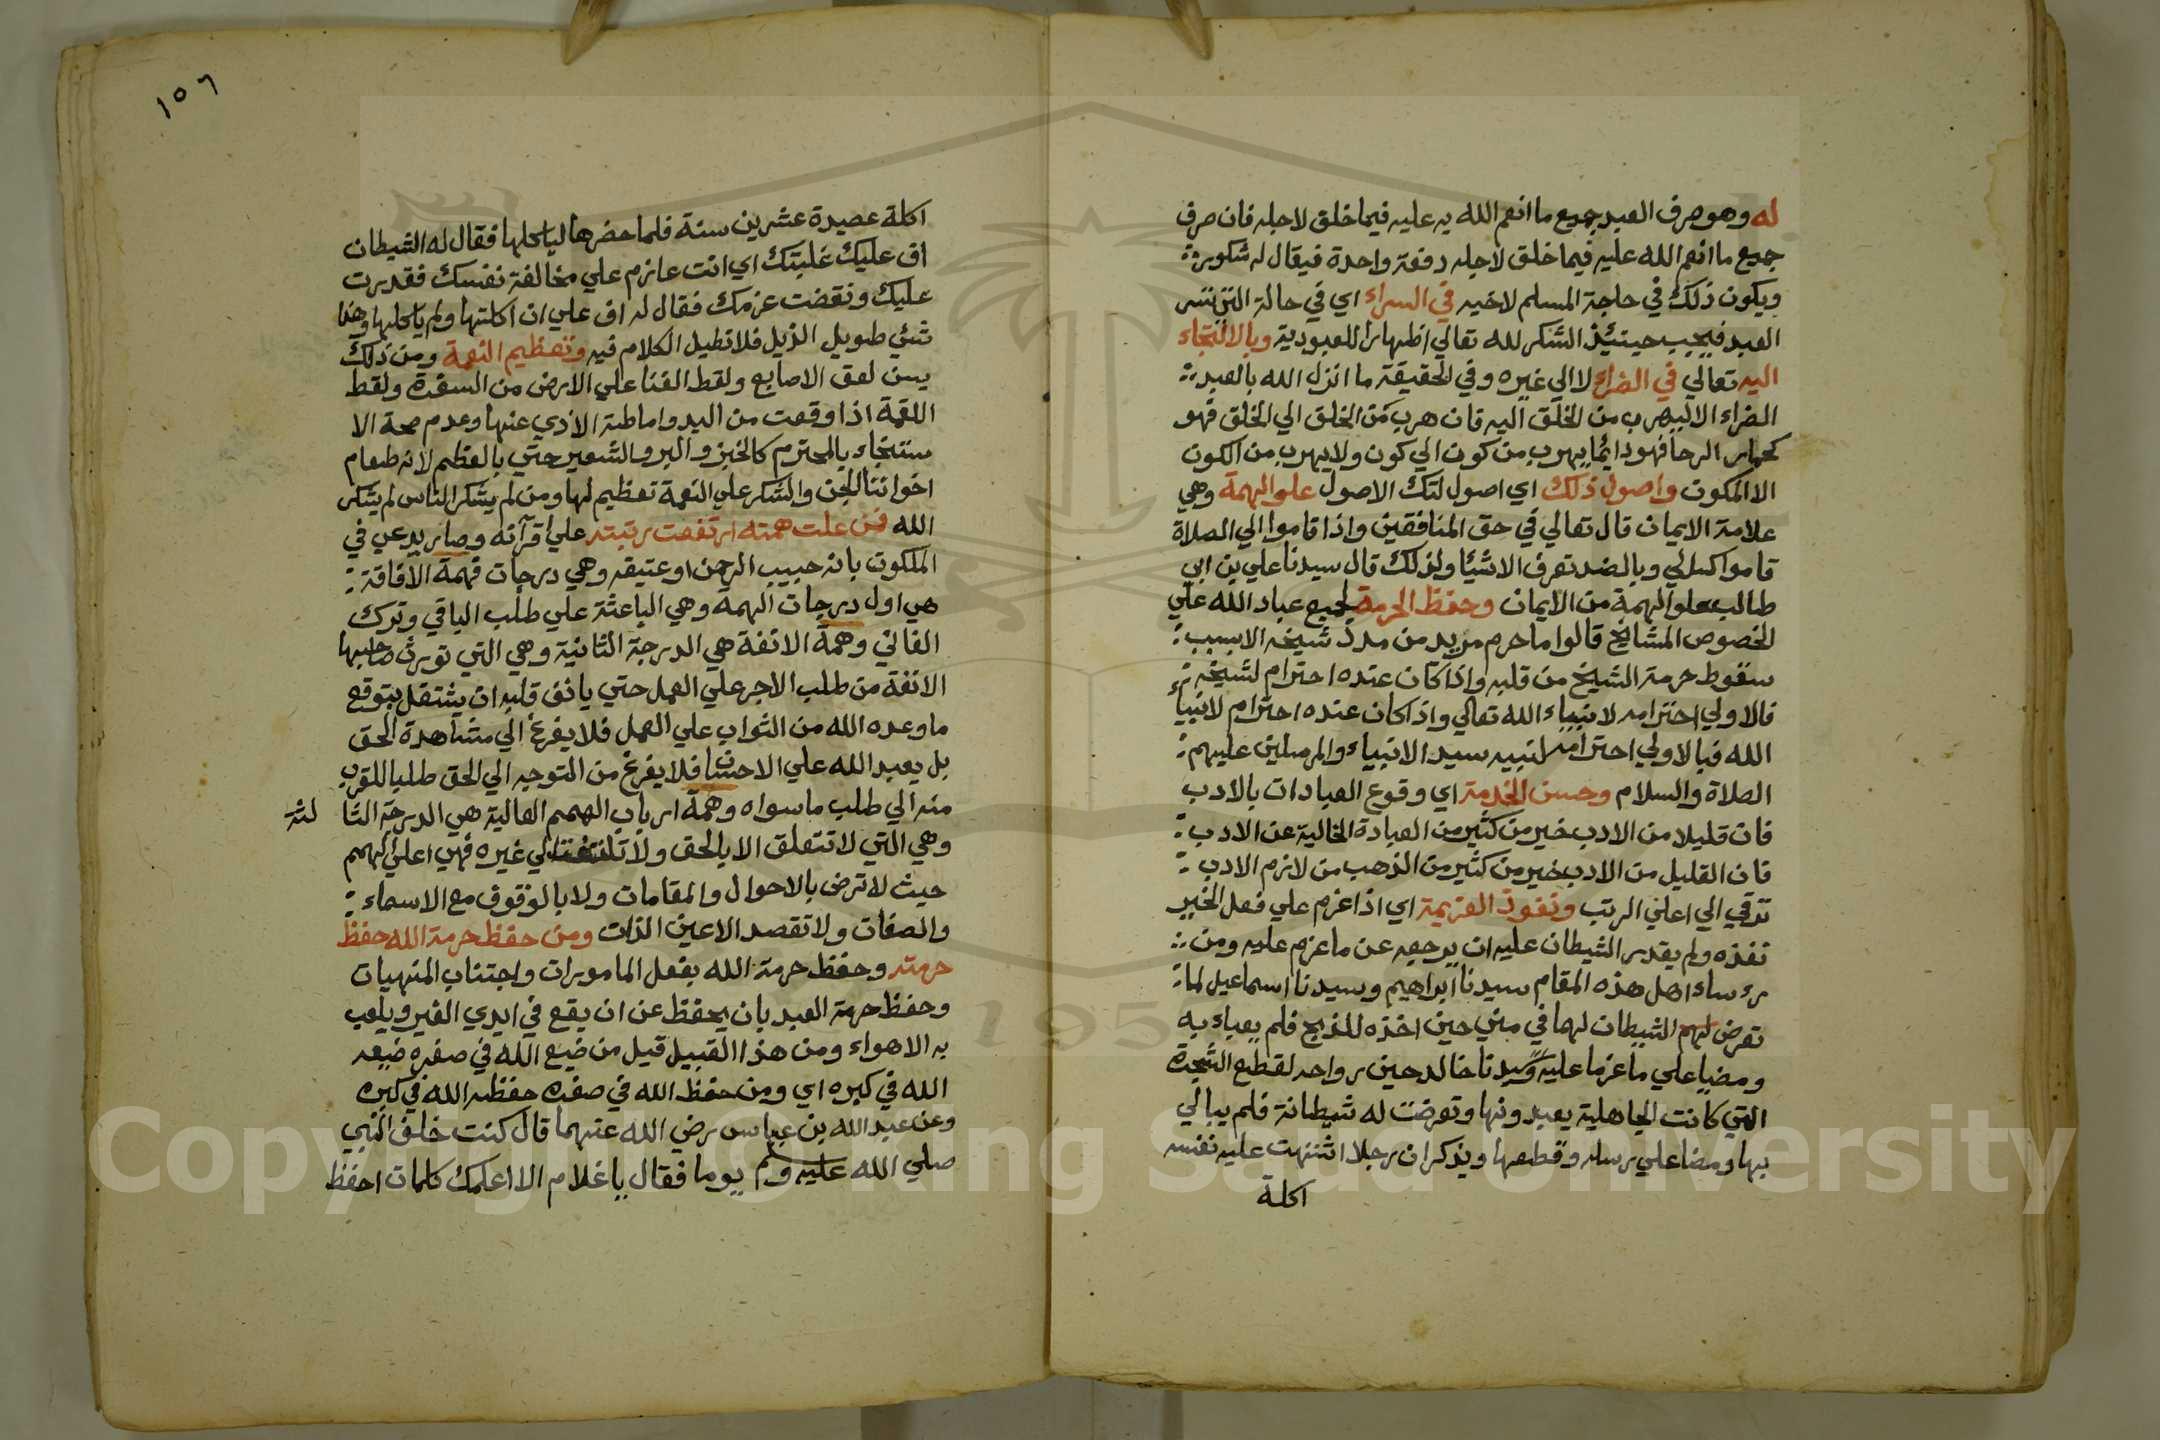 له وهو صرف العبد جميع ما انعم الله به عليه فيما خلق لاجله فان صرف
جميع ما انعم الله عليه فيما خلق لاجله دفعة واحدة فيقال له شكور
ويكون ذلك في حاجة المسلم لاخيه في السراء اي في حالة التي تسر
العبد فيجب حينئذ الشكر لله تعالي اظهارا للعبودية وبالالتجاء
اليه تعالي في الضراء لا الي غيره وفي الحقيقة ما انزل الله بالعبد
الضراء الا ليهرب من الخلق اليه فان هرب من الخلق الي الخلق فهو
كحمار الرحا فهو دائما يهرب من كون الي كون ولا يهرب من الكون
الا المكون واصول ذلك اي اصول لتك الاصول علو الهمة وهي
علامة الايمان قال تعالي في حق المنافقين واذا قاموا الي الصلاة
قاموا كسالي وبالضد تعرف الاشيا ولذلك قال سيدنا علي بن ابي
طالب علو الهمة من الايمان وحفظ الحرمة لجميع عباد الله علي
الخصوص المشايخ قالوا ما حرم مريد من مدد شيخه الا بسبب
سقوط حرمة الشيخ من قلبه واذا كان عنده احترام لشيخه
فالاولي احترامه لانبياء الله تعالي واذا كان عنده احترام لانبياء
الله فبالاولي احترامه لنبيه سيد الانبياء والمرسلين عليهم
الصلاة والسلام وحسن الخدمة اي وقوع العبادات بالادب
فان قليلا من الادب خير من كثير من العبادة الخالية عن الادب
فان القليل من الادب خير من كثير من الذهب من لازم الادب
ترقي الي اعلي الرتب ونفوذ العزيمة اي اذا عزم علي فعل الخير
نفذه ولم يقدر الشيطان عليه ان يرجعه عن ما عزم عليه ومن
رءساء اهل هذه المقام سيدنا ابراهيم وسيدنا اسماعيل لما
تعرض لهم الشيطان لهما في مني حين اخذه للذبح فلم يعباء به
ومضيا علي ما عزما عليه وسيدنا خالد حين رواحه لقطع الشجرة
التي كانت الجاهلية يعبدونها وتعرضت له شيطانة فلم يبالي
بها ومضا علي رسله وقطعها ويذكر ان رجلا اشتهت عليه نفسه
اكلة
١٥٦
اكلة عصيدة عشرين سنة فلما حضرها لياكلها فقال له الشيطان
اف عليك غلبتك اي انت عازم علي مخالفة نفسك فقدرت
عليك ونقضت عزمك فقال له اف علي ان اكلتها ولم ياكلها وهذا
شئ طويل الذيل فلا نطيل الكلام فيه وتعظيم النعمة ومن ذلك
يسن لعق الاصابع ولقط الفتا علي الارض من السفرة ولقط
اللقمة اذا وقعت من اليد واماطة الاذي عنها وعدم صحة الا
ستنجاء بالمحترم كالخبز والبر والشعير حتي بالعظم لانه طعام
اخواننا الجن والشكر علي النعمة تعظيم لها ومن لم يشكر الناس لم يشكر
الله فمن علت همته ارتفعت رتبته علي اقرآنه وصار يدعي في
الملكوت بانه حبيب الرحمن او عتيقه وهي درجات فهمة الافاقة
هي اول درجات الهمة وهي الباعثة علي طلب الباقي وترك
الفاني وهمة الانفة هي الدرجة الثانية وهي التي تورث صاحبها
الانفة من طلب الاجر علي العمل حتي يانف قلبه ان يشتغل بتوقع
ما وعده الله من الثواب علي العمل فلا يفرغ الي مشاهدة الحق
بل يعبد الله علي الاحسان فلا يفرغ من التوجه الي الحق طلبا للقرب
منه الي طلب ما سواه وهمة ارباب الهمم العالية هي الدرجة الثا لثة
وهي التي لا تتعلق الا بالحق ولا تلتفت الي غيره فهي اعلي الهمم
حيث لا ترض بالاحوال والمقامات ولا بالوقوف مع الاسماء
والصفات ولا تقصد الا عين الذات ومن حفظ حرمة الله حفظ
حرمته وحفظ حرمة الله بفعل المامورات واجتناب المنهيات
وحفظ حرمة العبد بان يحفظ عن ان يقع في ايدي الغير ويلعب
به الاهواء ومن هذا القبيل قيل من ضيع الله في صغره ضيعه
الله في كبره اي ومن حفظ الله في صغره حفظه الله في كبره
وعن عبد الله بن عباس رضي الله عنهما قال كنت خلف النبي
صلي الله عليه وسلم يوما فقال يا غلام الا اعلمك كلمات احفظ
Copyright © King Saud University
195